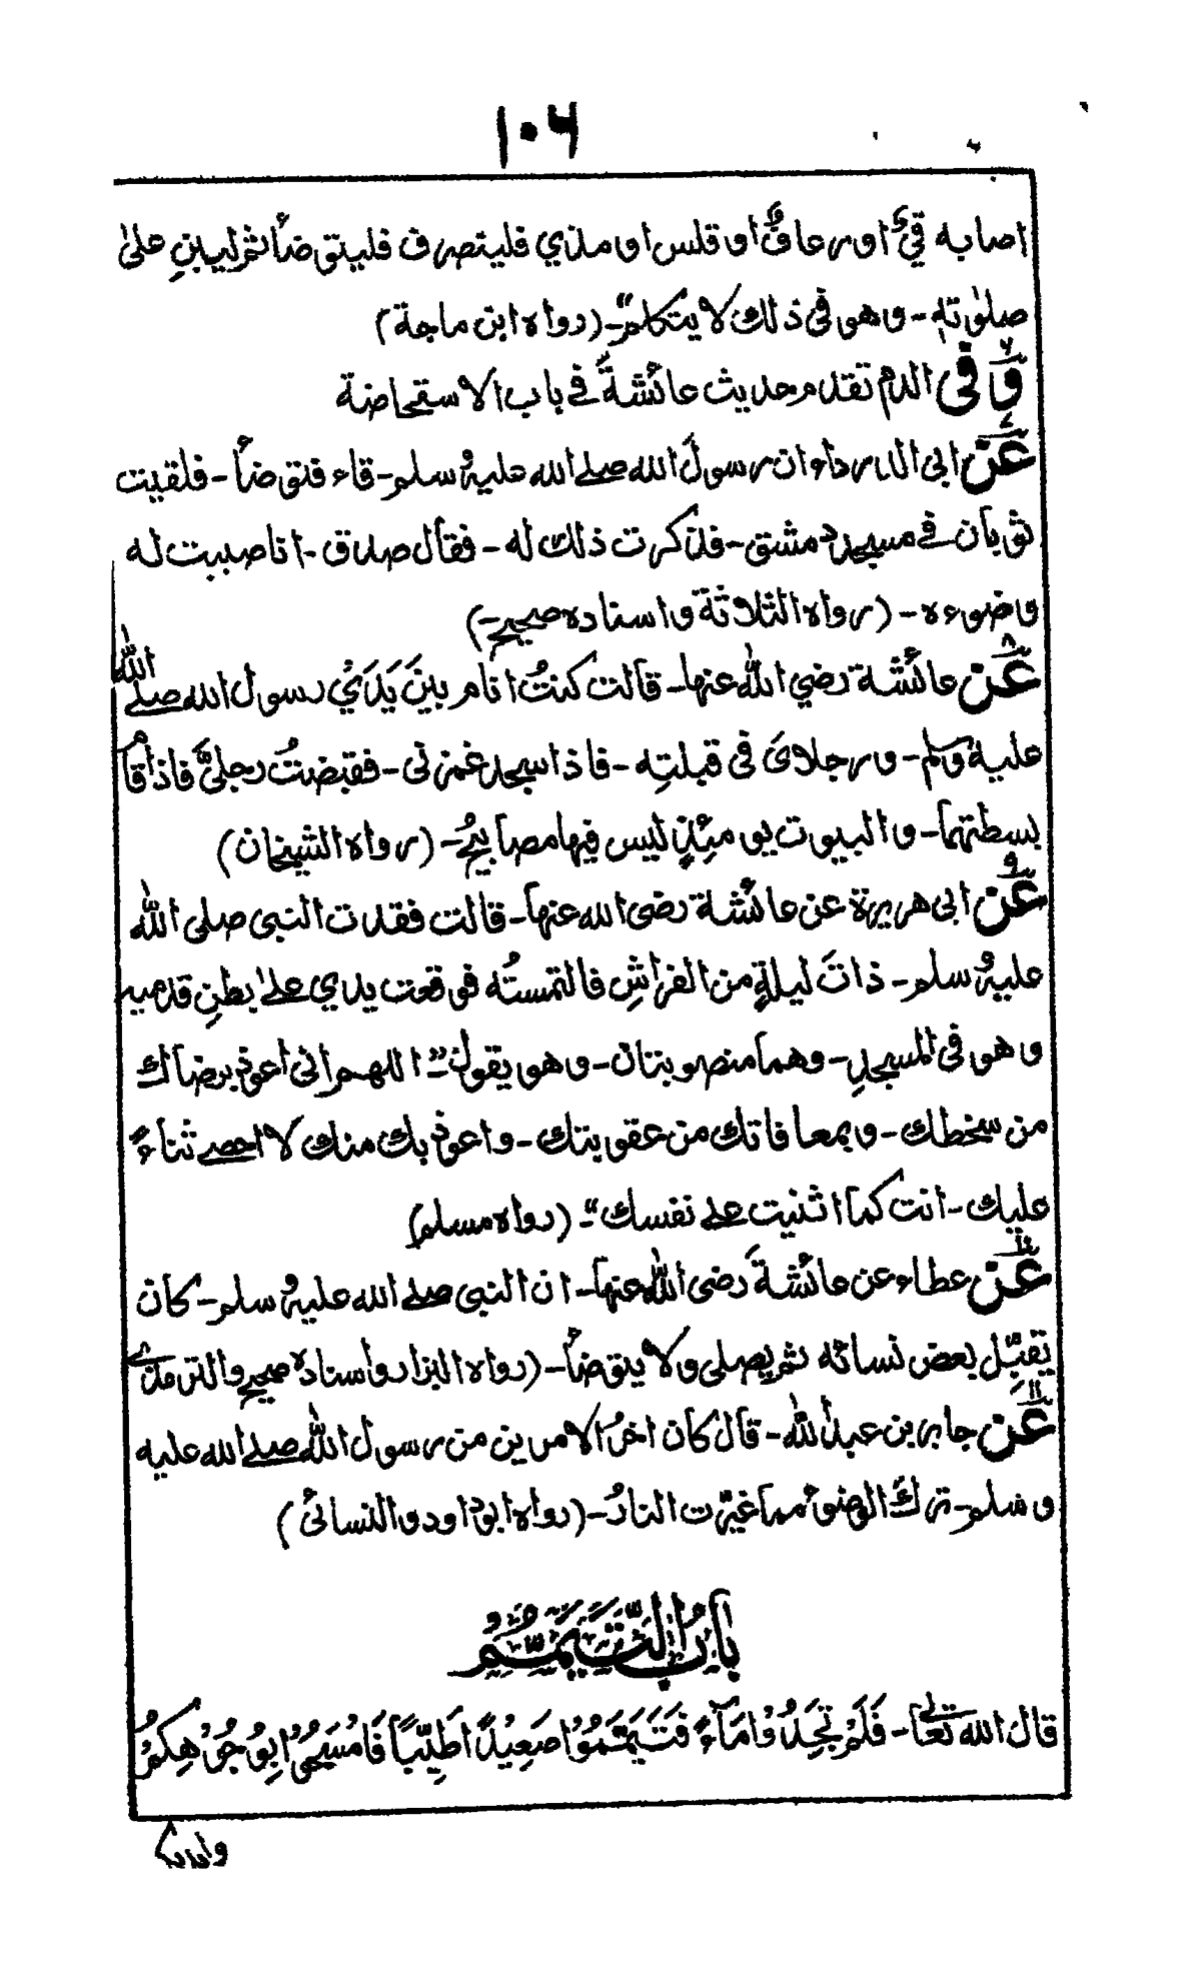 ١٠٦
اصابه قيءٌ او رعافٌ او قلس او مذي فليتصرف فليتوضأ ثم ليبنِ علیٰ
صلوٰته - وهو في ذلك لا يتكلم" - (رواه ابن ماجة)
٦ وَفى الدم تقدم حديث عائشةَ في باب الاستحاضة
٧ عَن ابي الدرداء ان رسولَ الله صلے الله عليه وسلم - قاء فتوضأ - فلقيت
ثوبان في مسجد دمشق - فذكرت ذلك له - فقال صدق - انا صببت له
وضوءه - (رواه الثلاثة واسناده صحيح -)
٨ عَن عائشة رضي الله عنها - قالت كنتُ انام بينَ يَدَيْ رسول الله صلے الله
عليه وسلم - ورجلاىَ فى قبلتِه - فاذا سجد غمزنى - فقبضتُ رجليَّ فاذا قام
بسطتهما - والبيوت يومئذٍ ليس فيها مصابيحُ - (رواه الشيخان)
٩ عَن ابى هريرة عن عائشة رضى الله عنها - قالت فقدت النبى صلى الله
عليه وسلم - ذاتَ ليلةٍ من الفراشِ فالتمستُه فوقعت يدي علےٰ بطنِ قدميه
وهو فى المسجدِ - وهما منصوبتان - وهو يقول "اللهم انى اعوذ برضاك
من سخطك - وبمعافاتك من عقوبتك - واعوذ بك منك لا احصے ثناءً
عليك - انت كما اثنيت علے نفسك" - (رواه مسلم)
١٠ عَن عطاء عن عائشةَ رضى الله عنها - ان النبى صلے الله عليه وسلم - كان
يقبّل بعض نسائه ثم يصلى ولا يتوضأ - (رواه البزار واسناده صحيح والترمذے
١١ عَن جابر بن عبد الله - قال كان اخرُ الامرين من رسول الله صلے الله عليه
وسلم - ترك الوضوء مما غيّرت النارُ - (رواه ابو داود والنسائى)
بَابُ التَّيَمُّمِ
قال الله تعالےٰ - فَلَمْ تَجِدُوْا مَآءً فَتَيَمَّمُوْا صَعِيْدًا طَيِّبًا فَامْسَحُوْا بِوُجُوْهِكُمْ
وايديكم